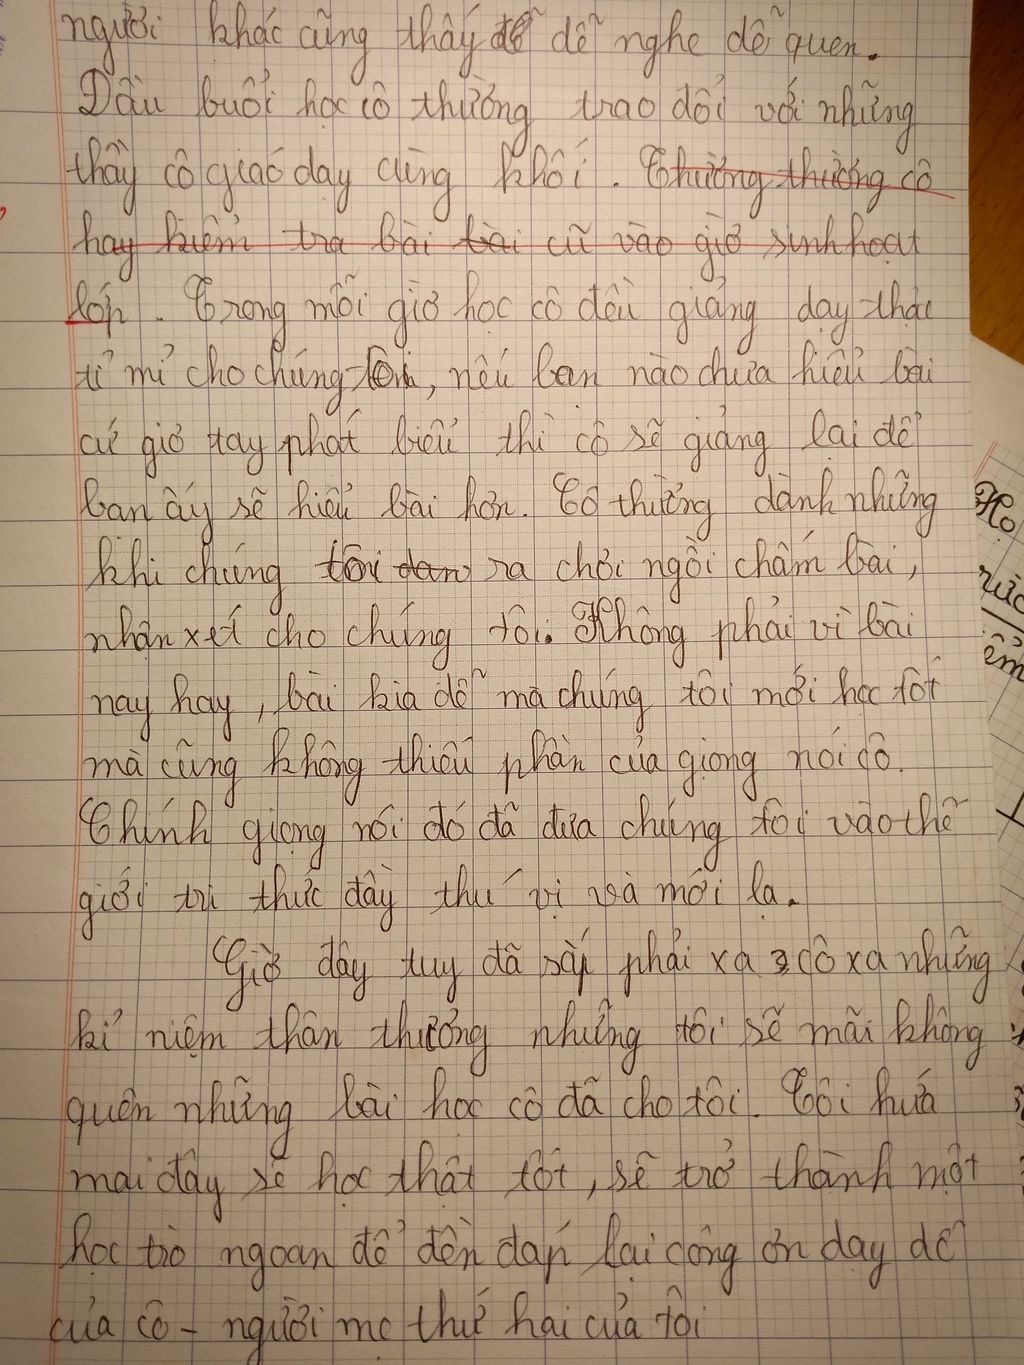 người khác cũng thấy dễ dễ nghe dễ quen.
Đầu buổi học cô thường trao đổi với những
thầy cô giáo dạy cùng khối. Thường thường cô
hay kiểm tra bài bài cũ vào giờ sinh hoạt
lớp. Trong mỗi giờ học cô đều giảng dạy thật
tỉ mỉ cho chúng tôi, nếu bạn nào chưa hiểu bài
cứ giơ tay phát biểu thì cô sẽ giảng lại để
bạn ấy sẽ hiểu bài hơn. Cô thường dành những
khi chúng tôi đan ra chơi ngồi chấm bài,
nhận xét cho chúng tôi. Không phải vì bài
nay hay, bài kia dễ mà chúng tôi mới học tốt
mà cũng không thiếu phần của giọng nói cô.
Chính giọng nói đó đã đưa chúng tôi vào thế
giới tri thức đầy thú vị và mới lạ.
Giờ đây tuy đã sắp phải xa cô xa những
kỉ niệm thân thương nhưng tôi sẽ mãi không
quên những bài học cô đã cho tôi. Tôi hứa
mai đây sẽ học thật tốt, sẽ trở thành một
học trò ngoan để đền đáp lại công ơn dạy dỗ
của cô - người mẹ thứ hai của tôi
Họ